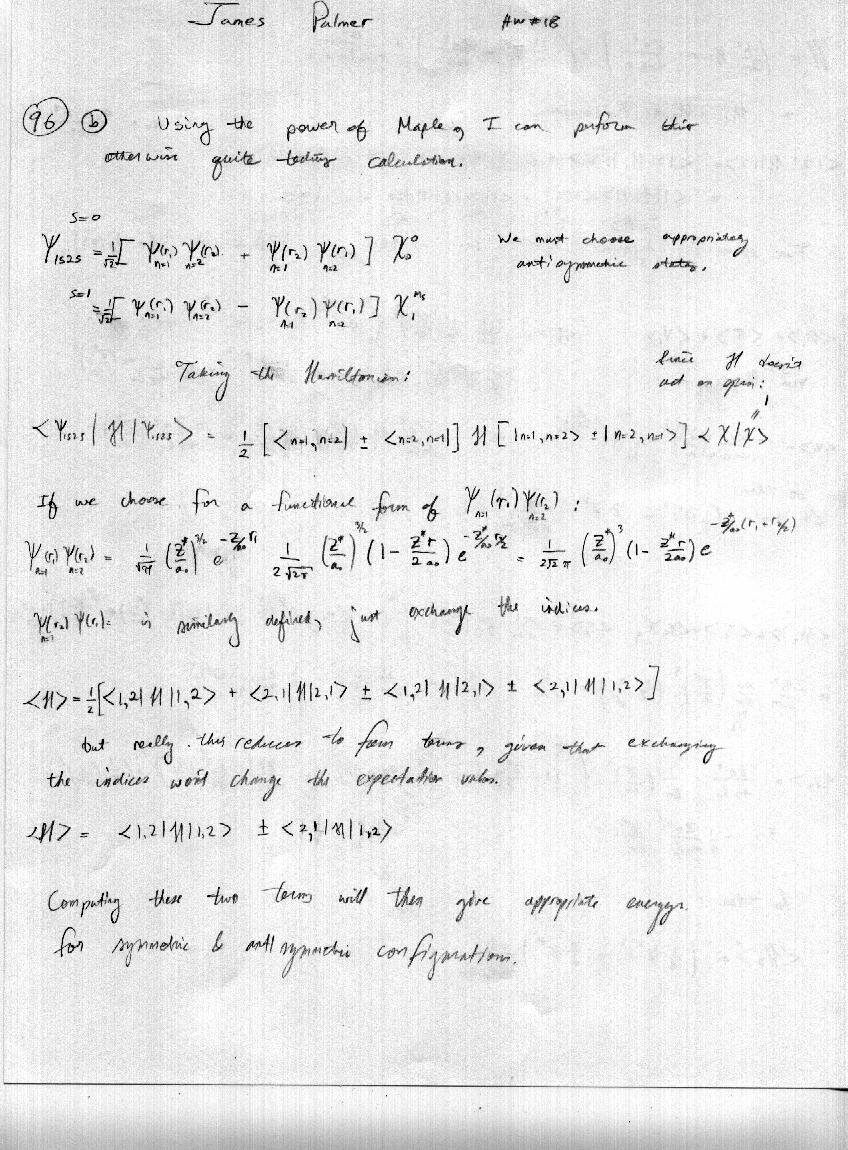 James Palmer HW #18
96 b Using the power of Maple, I can perform this
otherwise quite tedious calculation.
S=0
Ψ1s2s = 1/√2 [ Ψ(r₁) n=1 Ψ(r₂) n=2 + Ψ(r₂) n=1 Ψ(r₁) n=2 ] χ₀⁰ We must choose appropriately
antisymmetric states.
S=1
= 1/√2 [ Ψ(r₁) n=1 Ψ(r₂) n=2 − Ψ(r₂) n=1 Ψ(r₁) n=2 ] χ₁^Ms
Taking the Hamiltonian: Since H doesn't
act on spin:
<Ψ1s2s | H | Ψ1s2s> = 1/2 [<n=1,n=2| ± <n=2,n=1|] H [|n=1,n=2> ± |n=2,n=1>] <χ|χ> 1
If we choose for a functional form of Ψ(r₁) n=1 Ψ(r₂) n=2 :
Ψ(r₁) n=1 Ψ(r₂) n=2 = 1/√π (Z*/a₀)^3/2 e^-Z*/a₀ r₁ 1/2√2π (Z*/a₀)^3/2 (1 − Z*r/2a₀) e^-Z*/a₀ r₂/2 = 1/2√2 π (Z*/a₀)^3 (1 − Z*r/2a₀) e^-Z*/a₀ (r₁ + r₂/2)
Ψ(r₂) n=1 Ψ(r₁)= is similarly defined, just exchange the indices.
<H> = 1/2 [<1,2|H|1,2> + <2,1|H|2,1> ± <1,2|H|2,1> ± <2,1|H|1,2>]
but really this reduces to terms, given that exchanging
the indices won't change the expectation value.
<H> = <1,2|H|1,2> ± <2,1|H|1,2>
Computing these two terms will then give appropriate energys
for symmetric & antisymmetric configurations.